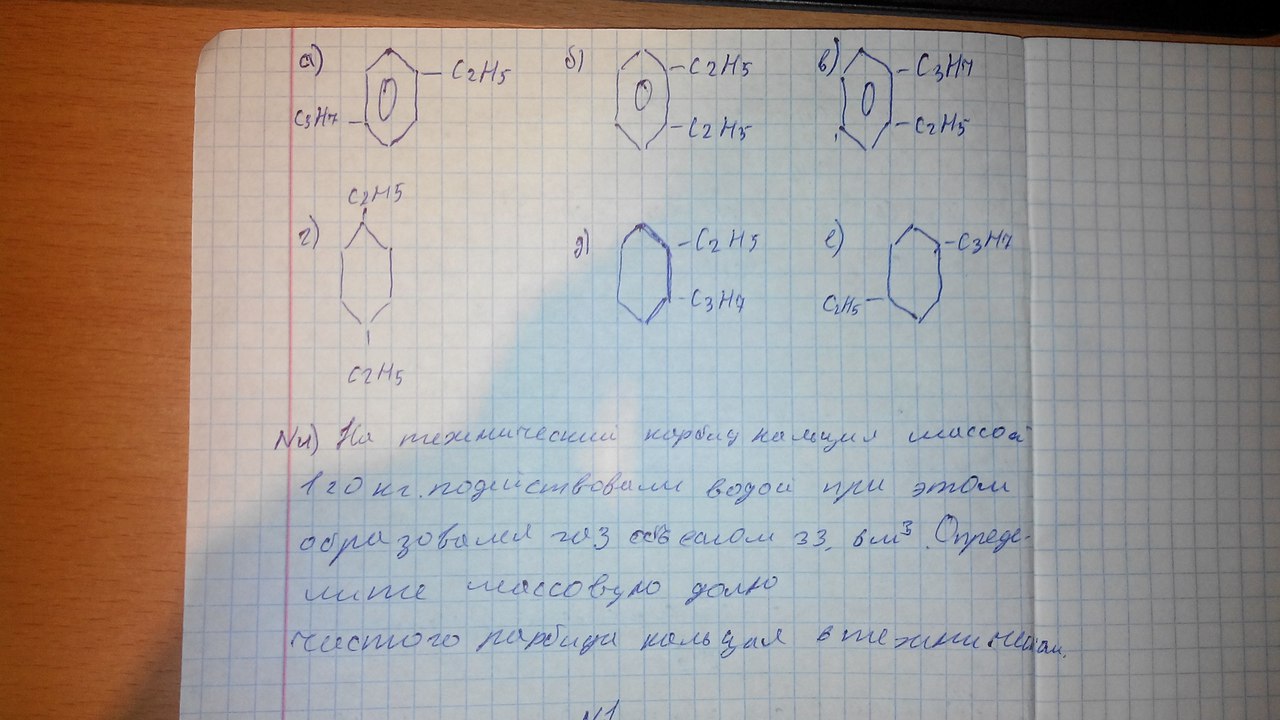 а) C2H5 C3H7
б) C2H5 C2H5
в) C3H7 C2H5
г) C2H5 C2H5
д) C2H5 C3H7
е) C3H7 C2H5
N4) На технический карбид кальция массой
120 кг. подействовали водой при этом
образовался газ объемом 33,6 м³. Опреде-
лите массовую долю
чистого карбида кальция в техническом.
N1